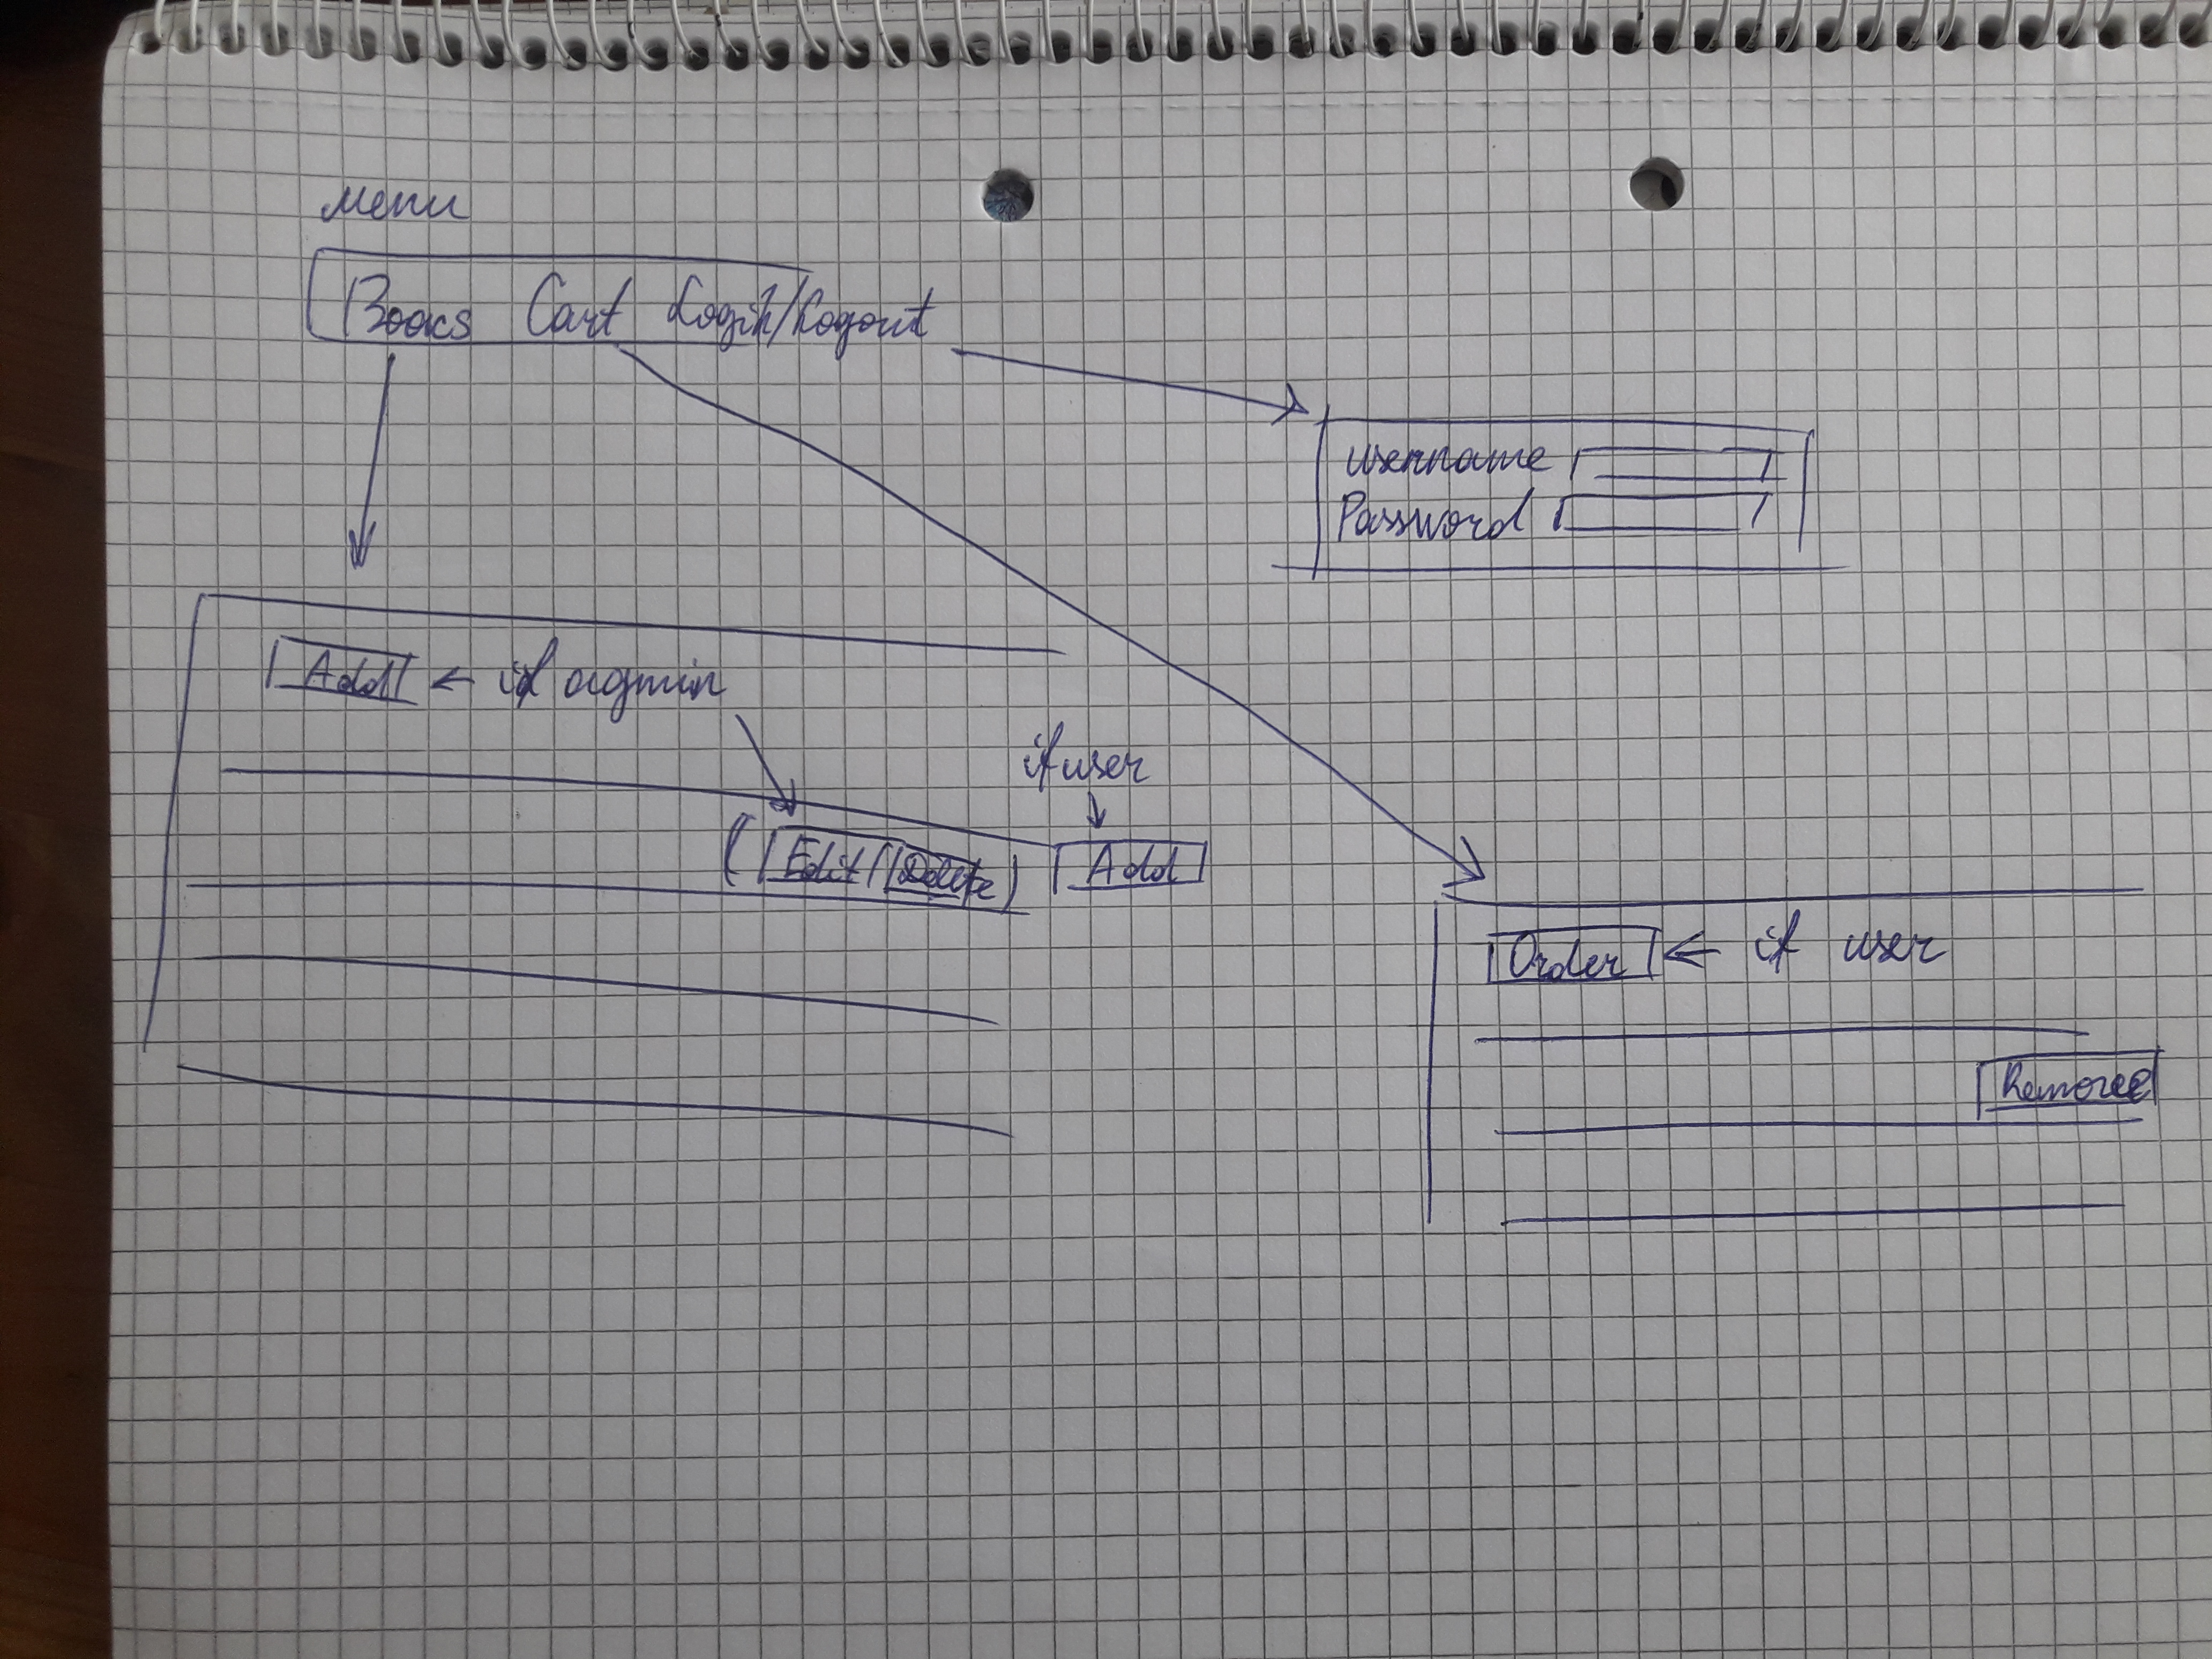 Menu
Books Cart Login/Logout
Username
Password
Add ← if admin
if user
Edit Delete Add
Order ← if user
Remove